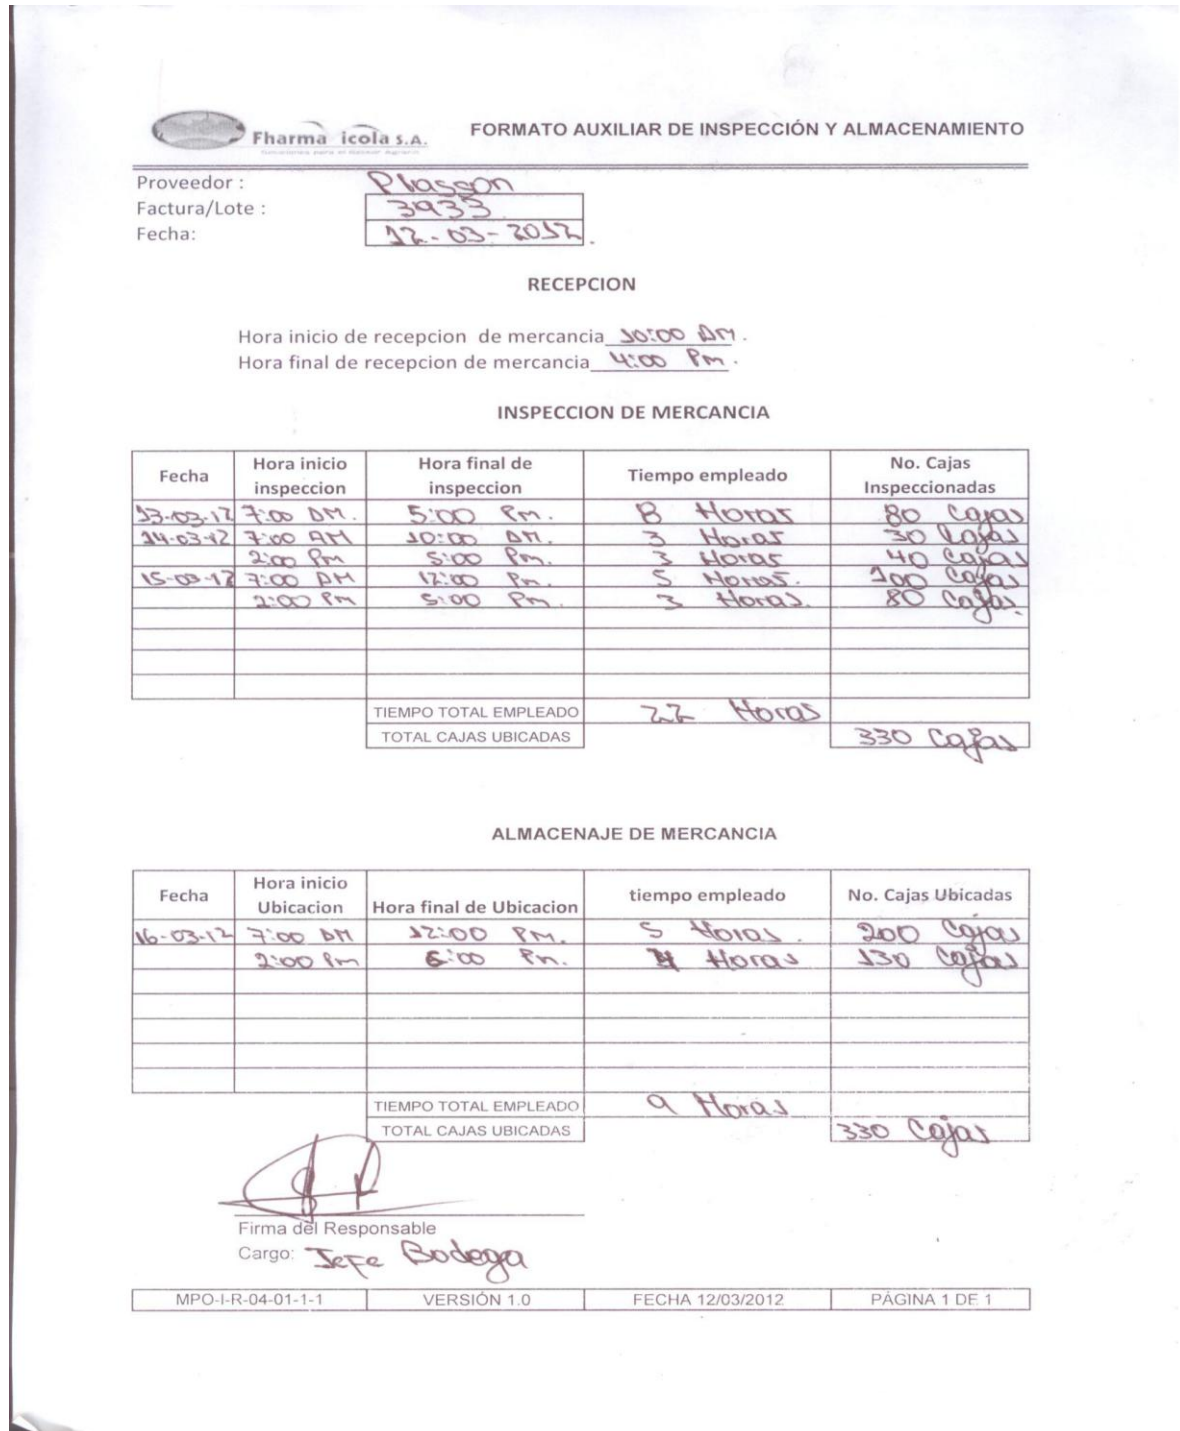 Fharma icola S.A.
FORMATO AUXILIAR DE INSPECCIÓN Y ALMACENAMIENTO
Proveedor : Plasson
Factura/Lote : 3933
Fecha: 12-03-2012.
RECEPCION
Hora inicio de recepcion de mercancia 10:00 AM.
Hora final de recepcion de mercancia 4:00 Pm.
INSPECCION DE MERCANCIA
Fecha Hora inicio inspeccion Hora final de inspeccion Tiempo empleado No. Cajas Inspeccionadas
13-03-12 7:00 AM. 5:00 Pm. 8 Horas 80 Cajas
14-03-12 7:00 AM 10:00 AM. 3 Horas 30 Cajas
2:00 Pm 5:00 Pm. 3 Horas 40 Cajas
15-03-12 7:00 AM 12:00 Pm. 5 Horas. 100 Cajas
2:00 Pm 5:00 Pm. 3 Horas. 80 Cajas.
TIEMPO TOTAL EMPLEADO 22 Horas
TOTAL CAJAS UBICADAS 330 Cajas
ALMACENAJE DE MERCANCIA
Fecha Hora inicio Ubicacion Hora final de Ubicacion tiempo empleado No. Cajas Ubicadas
16-03-12 7:00 AM 12:00 PM. 5 Horas. 200 Cajas
2:00 Pm 6:00 Pm. 4 Horas 130 Cajas
TIEMPO TOTAL EMPLEADO 9 Horas
TOTAL CAJAS UBICADAS 330 Cajas
Firma del Responsable
Cargo: Jefe Bodega
MPO-I-R-04-01-1-1 VERSIÓN 1.0 FECHA 12/03/2012 PÁGINA 1 DE 1